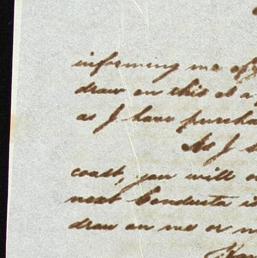 informing me of
draw on this at a
as I have purcha
As I s
coast, you will
next Conducta
draw on me or